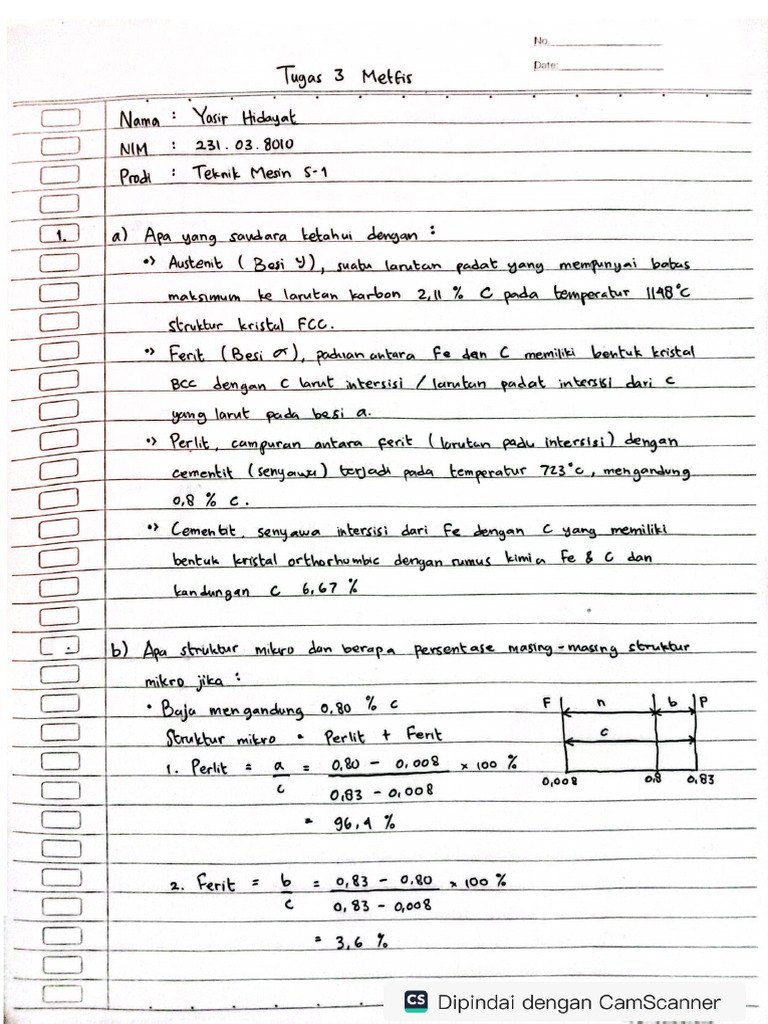 No.
Date:
Tugas 3 Metfis
Nama : Yasir Hidayat
NIM : 231.03.8010
Prodi : Teknik Mesin S-1
1. a) Apa yang saudara ketahui dengan :
•> Austenit (Besi γ), suatu larutan padat yang mempunyai batas
maksimum ke larutan karbon 2,11 % C pada temperatur 1148°C
struktur kristal FCC.
•> Ferit (Besi σ), paduan antara Fe dan C memiliki bentuk kristal
BCC dengan C larut intersisi / larutan padat intersisi dari C
yang larut pada besi a.
•> Perlit, campuran antara ferit (larutan padu intersisi) dengan
cementit (senyawa) terjadi pada temperatur 723°C, mengandung
0,8 % C.
•> Cementit, senyawa intersisi dari Fe dengan C yang memiliki
bentuk kristal orthorhumbic dengan rumus kimia Fe & C dan
kandungan C 6,67 %
b) Apa struktur mikro dan berapa persentase masing-masing struktur
mikro jika :
• Baja mengandung 0,80 % C
Struktur mikro = Perlit + Ferit
1. Perlit = a/c = 0,80 - 0,008 / 0,83 - 0,008 x 100 %
= 96,4 %
2. Ferit = b/c = 0,83 - 0,80 / 0,83 - 0,008 x 100 %
= 3,6 %
F n b P
c
0,008 0,8 0,83
CS Dipindai dengan CamScanner